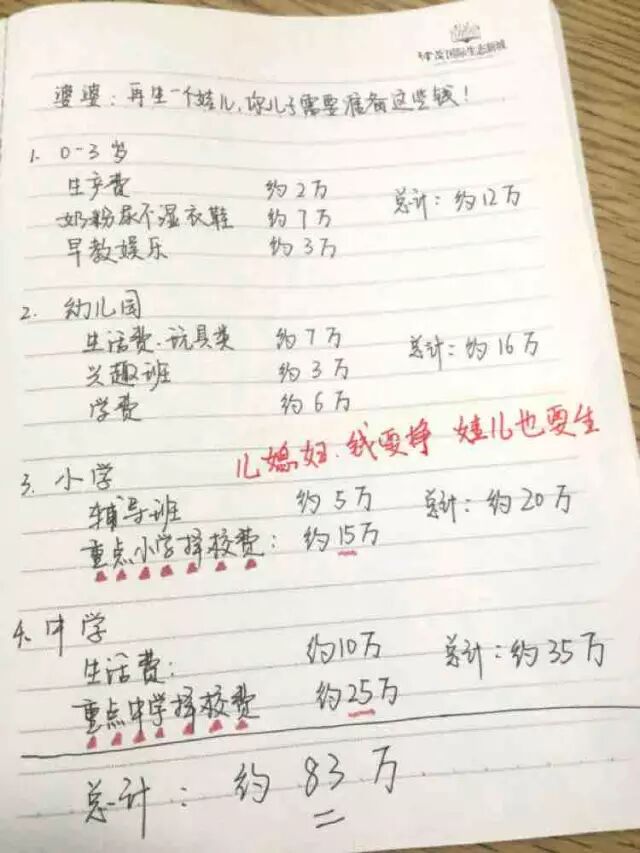 国际生态新城
婆婆：再生一个娃儿，你儿子需要准备这些钱！
1. 0-3岁
生产费 约2万
奶粉尿不湿衣鞋 约7万 总计：约12万
早教娱乐 约3万
2. 幼儿园
生活费、玩具类 约7万 总计：约16万
兴趣班 约3万
学费 约6万
儿媳妇、钱要挣 娃儿也要生
3. 小学
辅导班 约5万 总计：约20万
重点小学择校费： 约15万
4. 中学
生活费： 约10万 总计：约35万
重点中学择校费 约25万
总计： 约83万